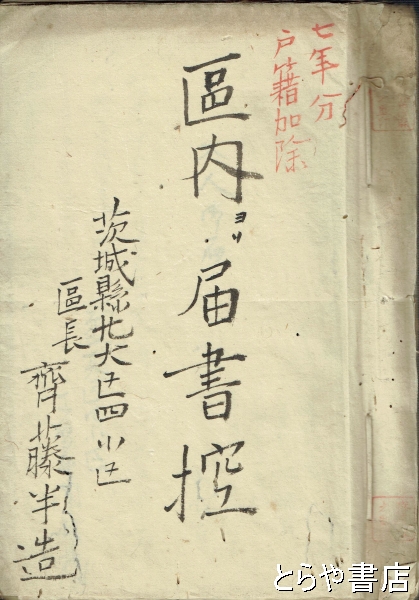 七年分
戸籍加除
區内ヨリ届書控
茨城縣北大区四小区
區長
齊藤半造
とらや書店